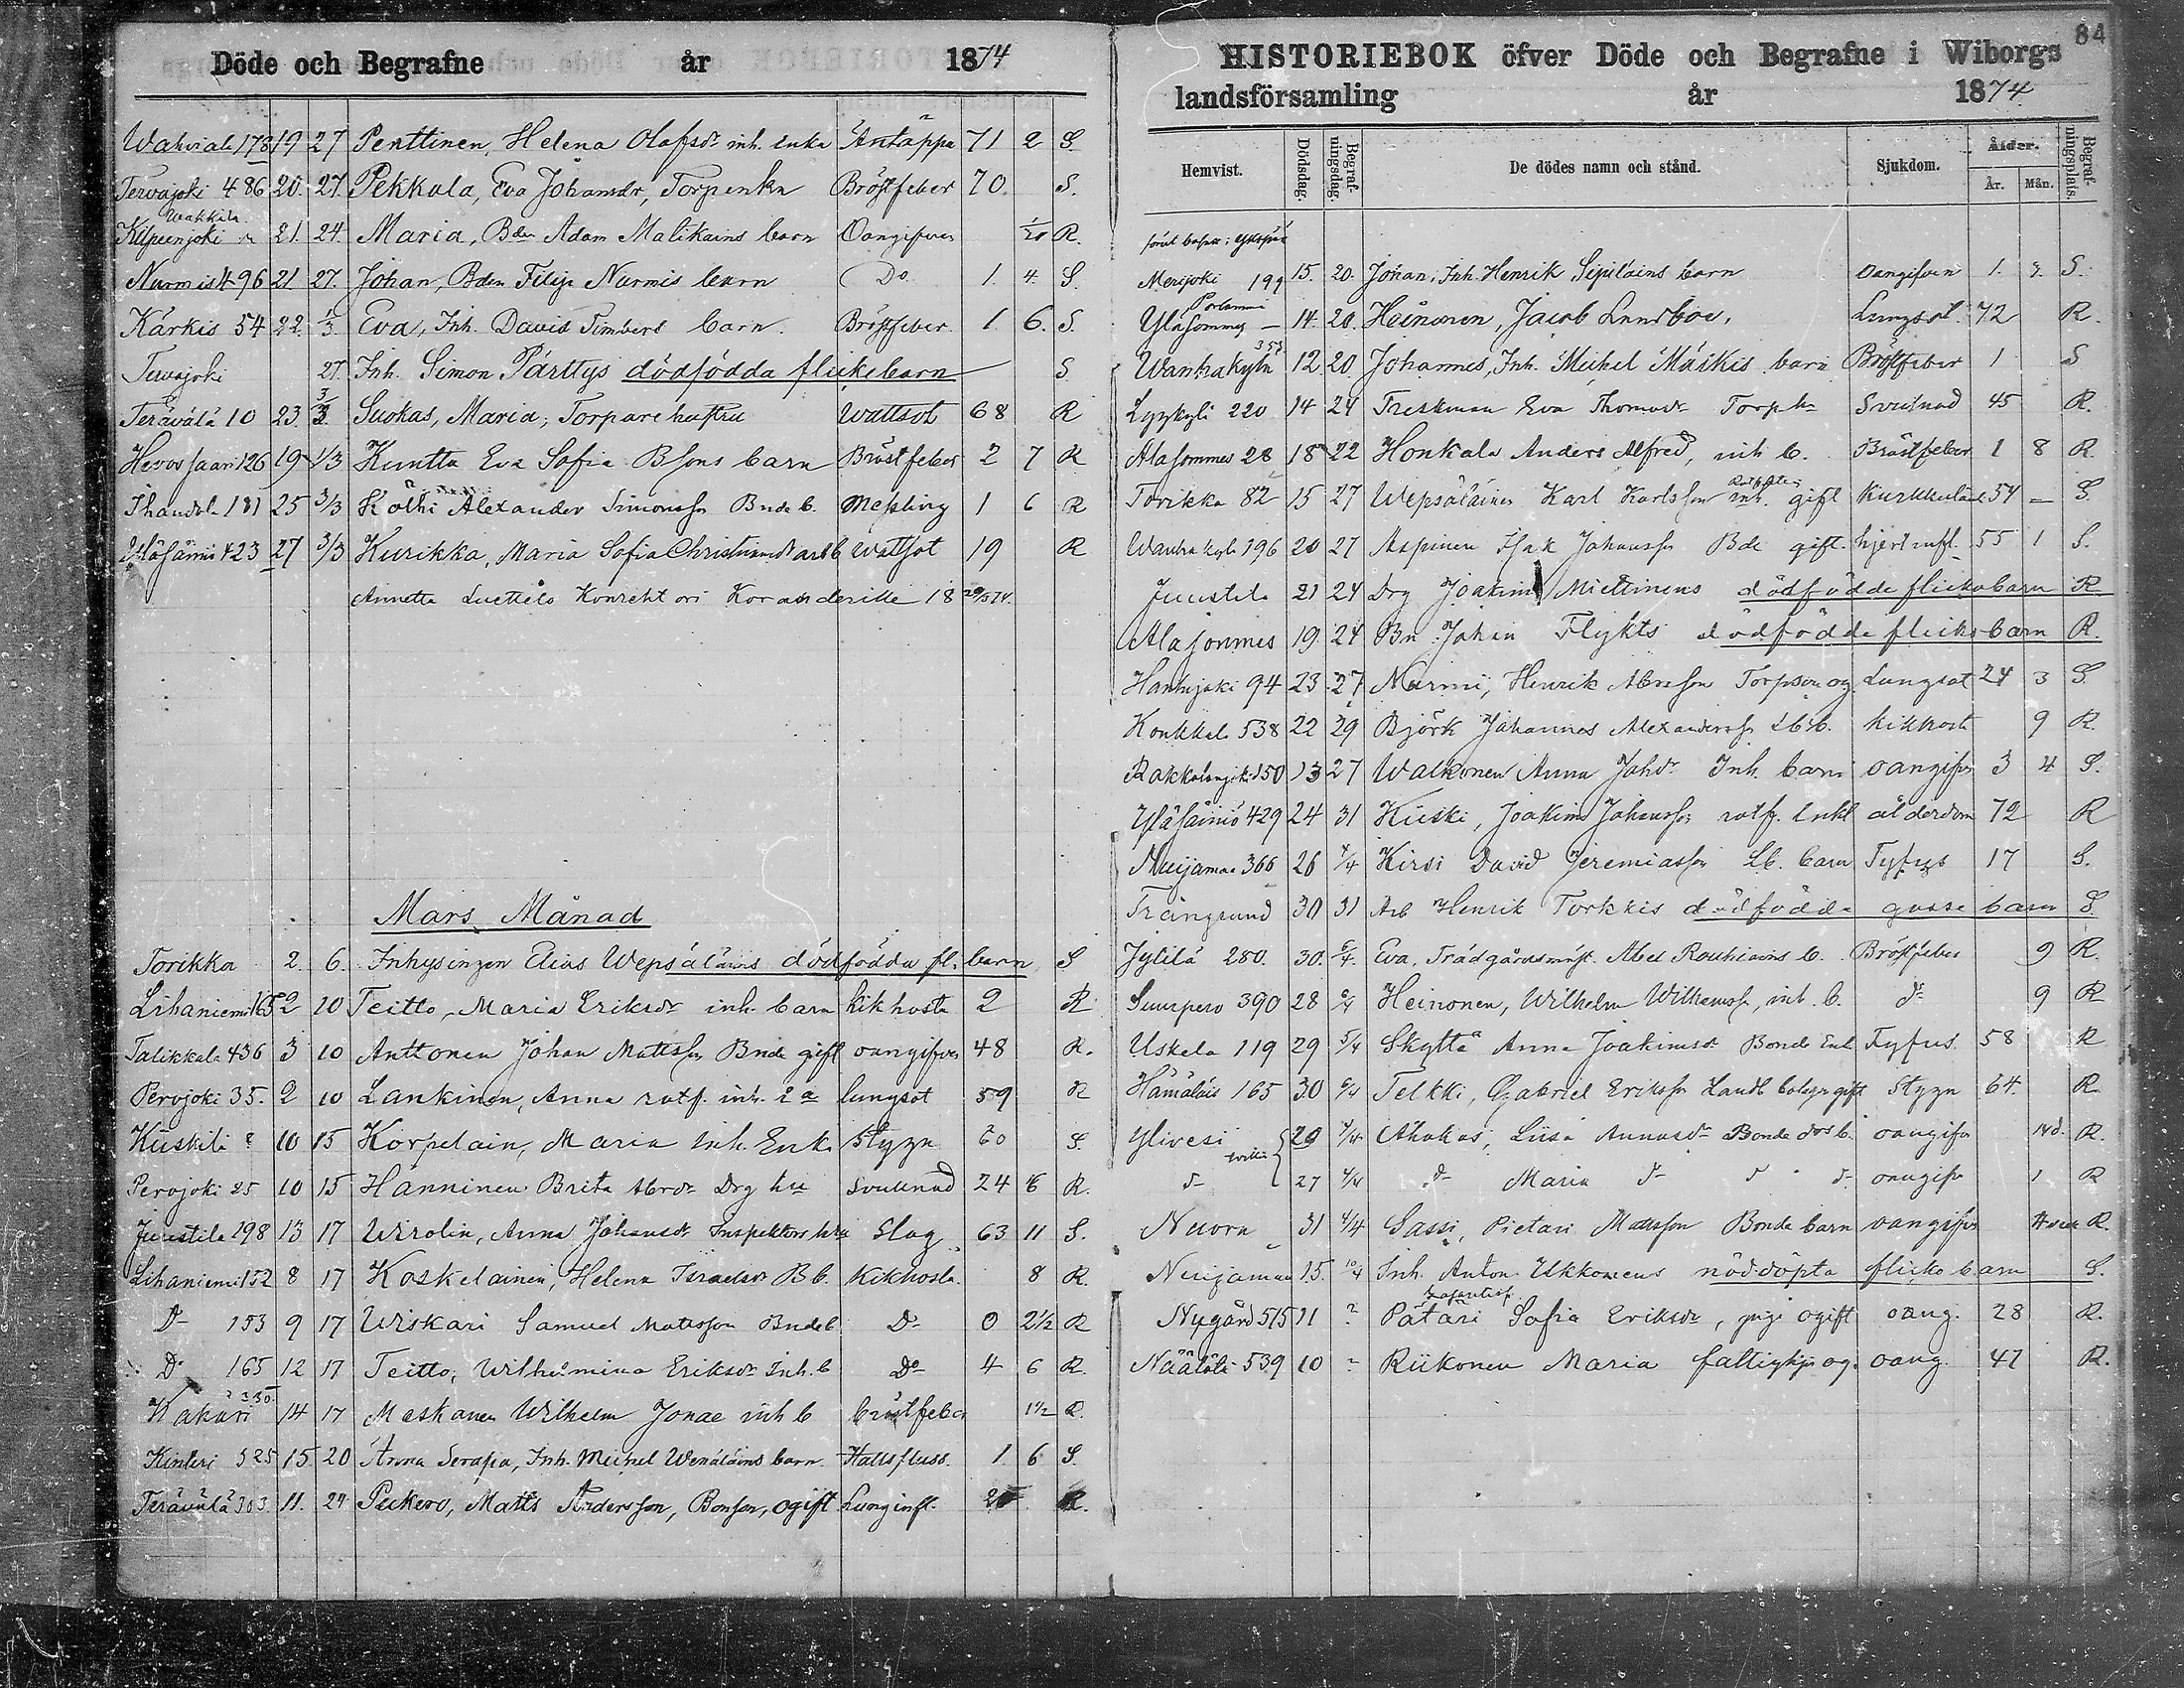 Döde och Begrafne år 1874
Wahviala 178 19 27 Penttinen, Helena Olafsdr inh. enka Andtäppa 71 2 S.
Tervajoki 486 20. 27. Pekkala, Eva Johansdr, Torpenka Bröstfeber 70. S.
Wakkila
Kilpeenjoki 21. 24. Maria, Bden Adam Matikains barn Oangifven 1/21 R.
Nurmis 496 21 27. Johan, Bden Filip Nurmis barn Do 1. 4. S.
Kärkis 54 22. 1/3. Eva, Inh. David Simbers barn. Bröstfeber. 1. 6. S.
Tervajoki 27. Inh. Simon Pärttys dödfödda flickebarn S.
Terävälä 10 23. 3/3. Suokas, Maria, Torpare hustru Wattsot 68 R
Hevossaari 126 19 1/3 Kuntta Eva Sofia Bsons barn Bröstfeber 2 7 R
Ihantala 181 25 3/3 Kölhi Alexander Simonsson Bnde b. Messling 1 6 R
Yläsäiniö 423 27 3/3 Kurikka, Maria Sofia Christiansdr arb b Wattsot 19 R
Annetta Luettelo Konrehtori 18 29/5 74.
Mars Månad
Torikka 2. 6. Inhysingen Elias Wepsäläins dödfödda fl. barn S
Lihaniemi 165 2 10 Teitto, Maria Eriksdr inh. barn kikhosta 2 R
Talikkala 436 3 10 Anttonen Johan Mattsson Bnde gift oangifven 48 R.
Pervojoki 35. 2 10 Lankinen, Anna rotf. inh. Ea lungsot 59 R
Kuskila ? 10 15 Korpelain, Maria Inh. Enk. Stygn 60 S.
Pervojoki 25 10 15 Hänninen Brita Abrdr Drg hu Svullnad 24 6 R.
Juustila 198 13 17 Wirolin, Anna Johansdr Inspektors hru Slag 63 11 S.
Lihaniemi 152 8 17 Koskelainen, Helena Israelsdr B b. Kikhosta. 8 R.
Do 153 9 17 Wiskari Samuel Mattsson Bnde b Do 0 2½ R
Do 165 12 17 Teitto, Wilhelmina Eriksdr Inh. b Do 4 6 R.
Kakari 350 14 17 Maskanen Wilhelm Jonae inh b bröstfeber 1½ R.
Kinteri 525 15. 20 Anna Serafia, Inh. Michel Wenäläins barn. Hallsfluss. 1 6 S.
Terävälä 303. 11. 24 Peckero, Matts Andersson, Bonson, ogift Lunginfl. 25 R.
84
HISTORIEBOK öfver Döde och Begrafne i Wiborgs
landsförsamling år 1874
Hemvist. Dödsdag. Begrafningsdag. De dödes namn och stånd. Sjukdom. Ålder. År. Mån. Begrafningsplats.
Merijoki 199 15. 20. Johan, Inh. Henrik Sipiläins barn oangifven 1. 9. S.
Porlammi
Yläsommes — 14. 20. Heinonen, Jacob Lunsboe, Lungsot. 72 R.
Wanhakylä 358 12. 20 Johannes, Inh. Michel Mäikis barn Bröstfeber 1 S
Lyykyli 220 14 24 Treskman Eva Thomasdr Torph Svullnad 45 R.
Alasommes 28 18 22 Honkala Anders Alfred, inh b. Bröstfeber 1 8 R
Torikka 82 15 27 Wepsäläinen Karl Karlsson inh. gift 54 — S.
Wanhakylä 196 20 27 Aspinen Isak Johansson Bde gift. hjertinfl. 55 1 S.
Juustila 21 24 Drg Joakim Miettinens dödfödde flickobarn R
Alasommes 19. 24 Bn Johan Flykts dödfödda flickobarn R.
Hanhijoki 94 23 27 Nurmi, Henrik Abrsson Torpson og. Lungsot 24 3 S.
Konkkala 538 22 29 Björk Johannes Alexandersson Lb b. kikhosta 9 R.
Rakkolanjoki 150 13 27 Walkonen Anna Johdr Inh. barn oangifven 3 4 S.
Yläsäiniö 429 24 31 Kiiski, Joakim Johansson rotf. enkl ålderdom 72 R
Nuijamaa 366 26 4/4 Kirsi David Jeremiasson Lb. barn Tyfus 17 S.
Trångsund 30 31 Arb Henrik Torkkis dödfödda gosse barn S.
Jylilä 280. 30. 6/4. Eva, Trädgårdsmäst. Abel Rouhiains b. Bröstfeber 9 R.
Suurpero 390 28 6/4 Heinonen, Wilhelm Wilhelmss, inh. b. do 9 R
Uskela 119 29 5/4 Skyttä Anna Joakimsdr Bonde Enk Tyfus. 58 R
Hämäläis 165 30 6/4 Telkki, Gabriel Eriksson Landb gift Styng 64. R.
Ylivesi 29 4/4 Ahokas, Liisa Annasdr Bonde drs b. oangifven 14 d. R.
tvilling do 27 4/4 do Maria do do do oangifven 1 R
Nuora 31 4/4 Sassi, Pietari Mattsson Bonde barn oangifven R.
Nuijamaa 15. 10/4 Inh. Anton Ukkonens nöddöpta flicko barn S.
Nygård 515 11 ? Pätäri Sofia Eriksdr, piga ogift oang. 28 R.
Näätälä 539 10 ? Riikonen Maria fattighjon og. oang. 47 R.